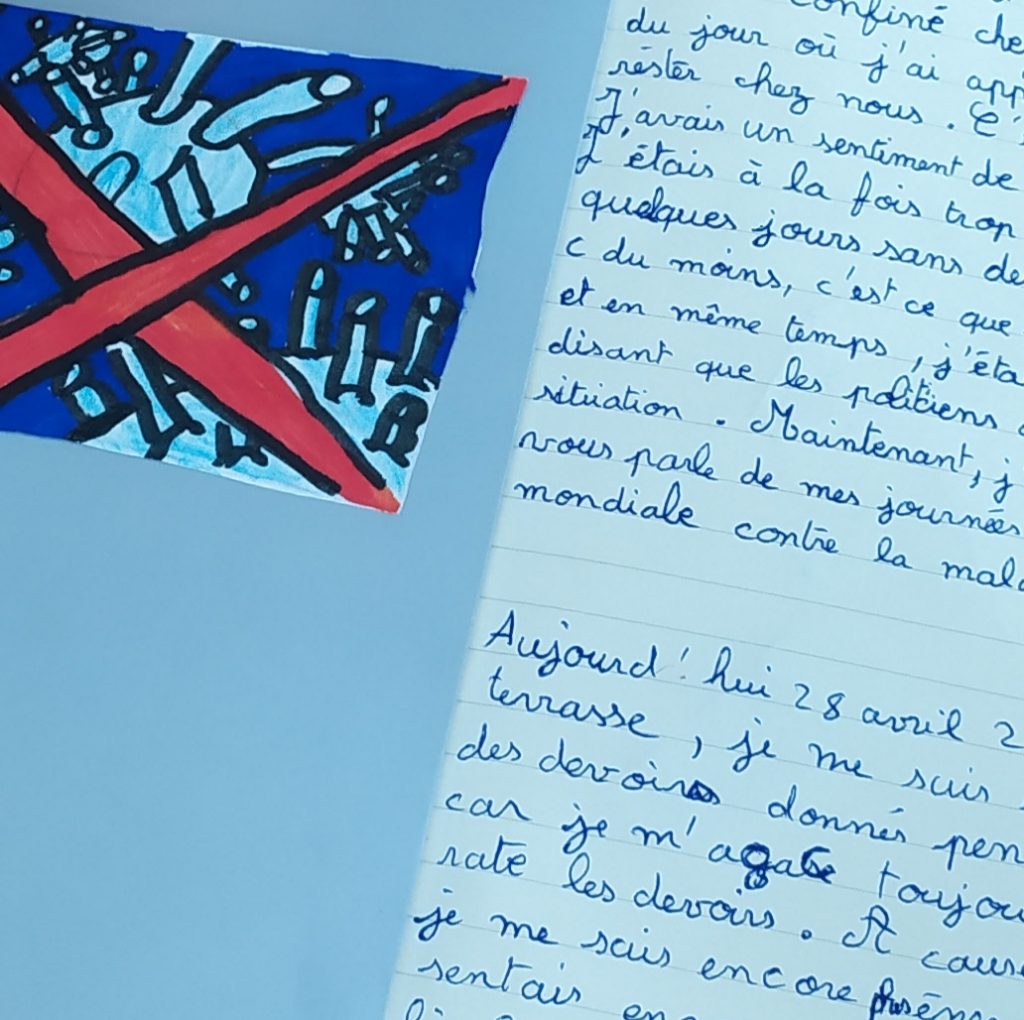 confiné che
du jour où j'ai app
rester chez nous. C'
J'avais un sentiment de
J'étais à la fois trop
quelques jours sans de
c du moins, c'est ce que
et en même temps, j'éta
disant que les politiens
situation. Maintenant, j
vous parle de mes journées
mondiale contre la mala
Aujourd'hui 28 avril 2
terrasse, je me suis
des devoirs donnés pen
car je m'agace toujou
rate les devoirs. A cause
je me suis encore
sentais en